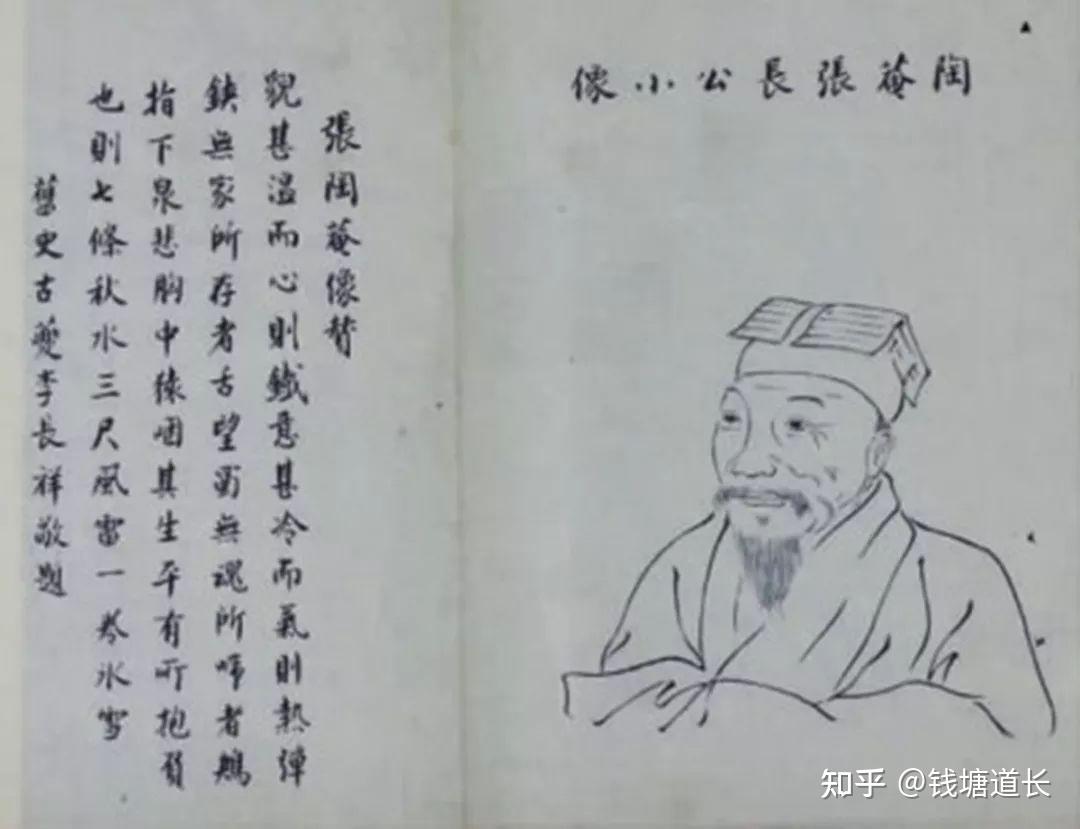 陶菴張長公小像
張陶菴像贊
貌甚溫而心則鐵意甚冷而氣則熱彈
鋏無家所存者舌望蜀無魂所啼者鵑
指下泉悲胸中猿咽其生平有所抱負
也則七條秋水三尺風雷一卷冰雪
舊史古夔李長祥敬題
知乎 @钱塘道长